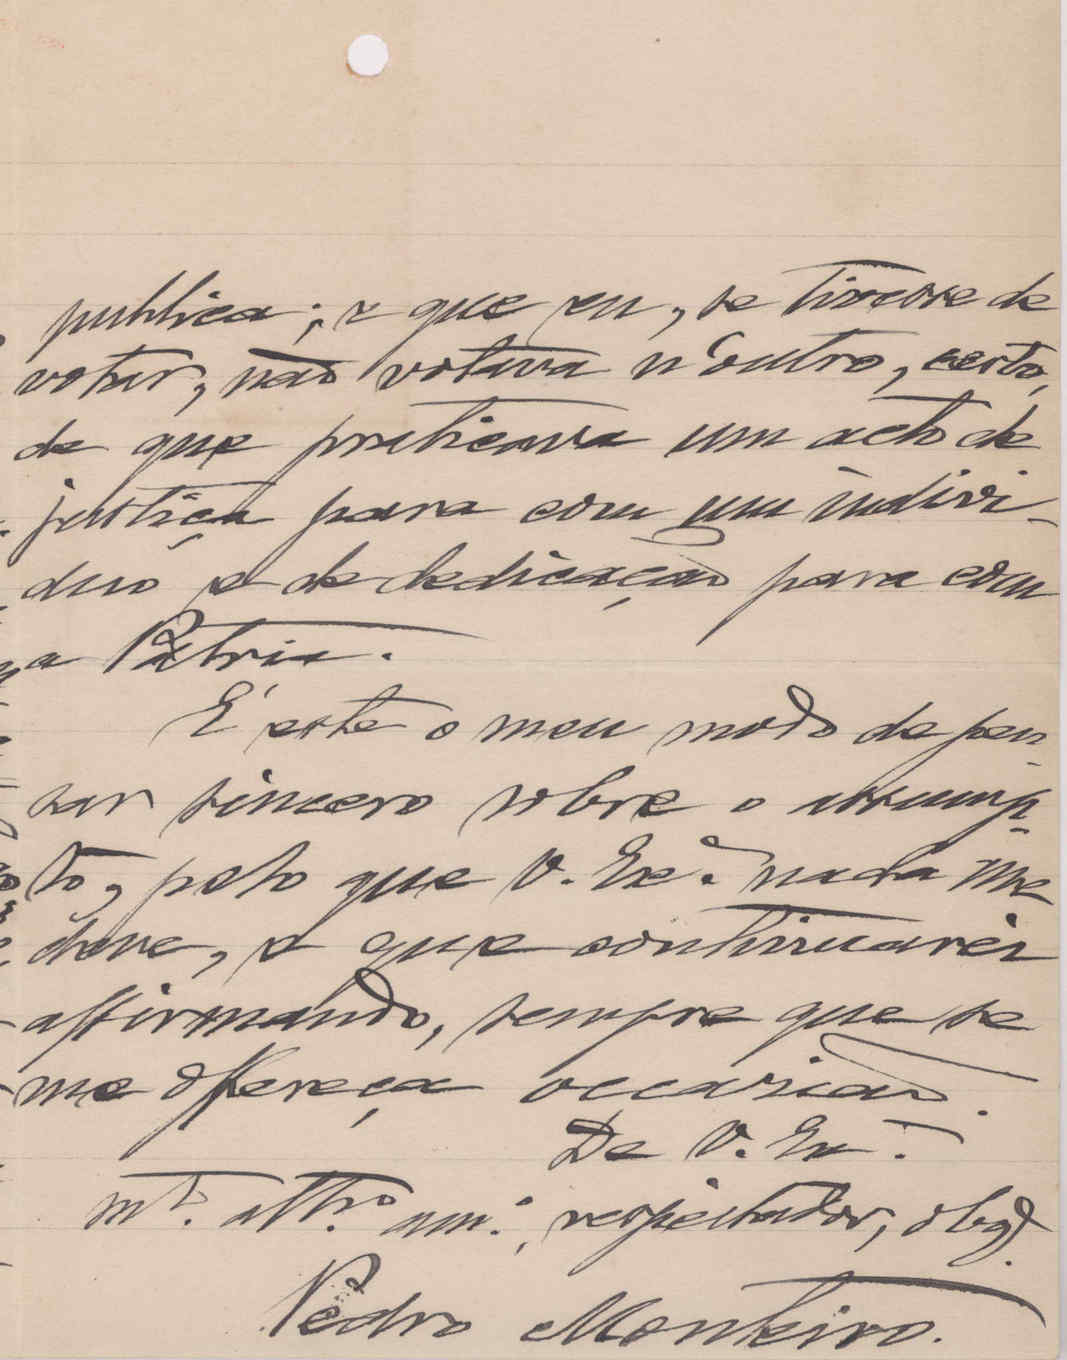 publica; e que eu, se tivesse de
votar, não votava n'outro, certo,
de que praticava um acto de
justiça para com um indivi-
duo e de dedicação para com
a Patria.
É este o meu modo de pen-
sar sincero sobre o assump-
to, pelo que V. Exª. nada me
deve, e que continuarei
affirmando, sempre que se
me offereça occasião.
De V. Exª.
mtº. attº. amº., respeitador, obgdº.
Pedro Monteiro.